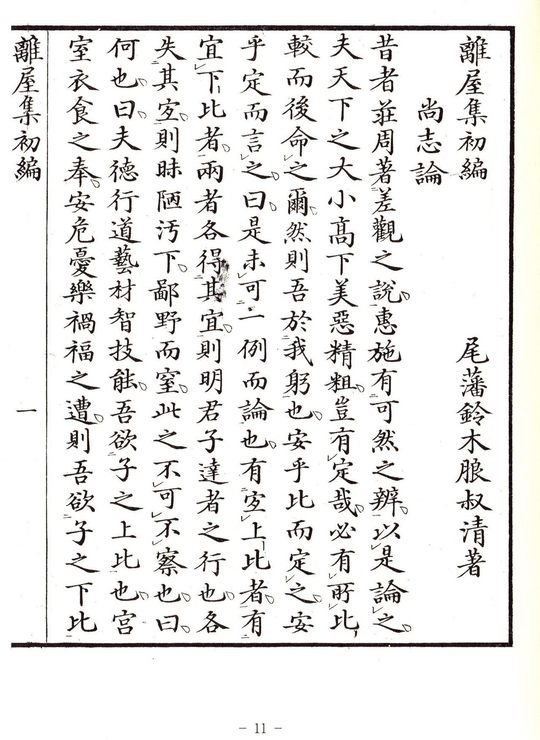 離屋集初編
尾藩鈴木朖叔清著
尚志論
昔者莊周著差觀之說。惠施有可然之辨。以是論之。
夫天下之大小高下美惡精粗。豈有定哉。必有所比
較而後命之爾。然則吾於我躬也。安乎比而定之。安
乎定而言之。曰。是未可一例而論也。有宜上比者。有
宜下比者。兩者各得其宜。則明君子達者之行也。各
失其宜。則昧陋汚下。鄙野而窒。此之不可不察也。曰。
何也。曰。夫德行道藝材智技能。吾欲子之上比也。宮
室衣食之奉。安危憂樂禍福之遭。則吾欲子之下比
離屋集初編
一
- 11 -